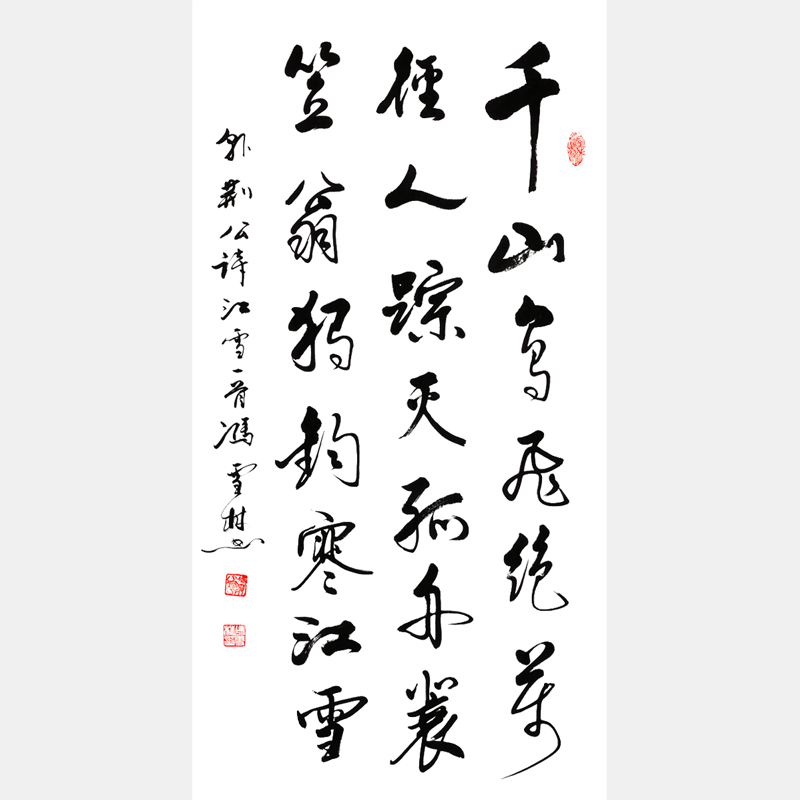 千山鸟飞绝萬
徑人踪灭孤舟蓑
笠翁独钓寒江雪
荆公诗江雪一首冯雪